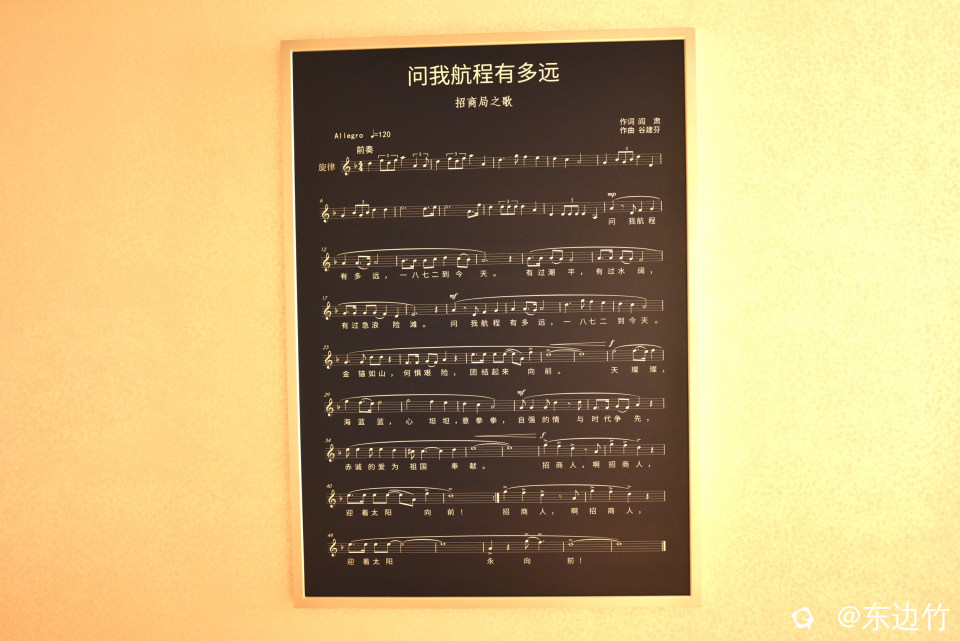 问我航程有多远
招商局之歌
作词 阎 肃
Allegro ♩=120
作曲 谷建芬
前奏
旋律
6
mp
问 我航程
12
有多 远，一八七二到今 天。 有过潮 平，有过水 阔，
17
mf
有过急浪 险 滩。 问 我航程 有多 远，一 八七二 到今天。
23
f
金 锚如山，何惧艰 险，团结起来 向 前。 天 璨 璨，
29
mf
海 蓝 蓝，心 坦 坦，意拳 拳，自强的情 与时代争 先，
34
f
赤诚的爱为 祖国 奉 献。 招商人，啊招商人，
40
迎 着太阳 向 前！ 招 商 人，啊 招 商 人，
46
迎 着太阳 永 向 前！
@东边竹